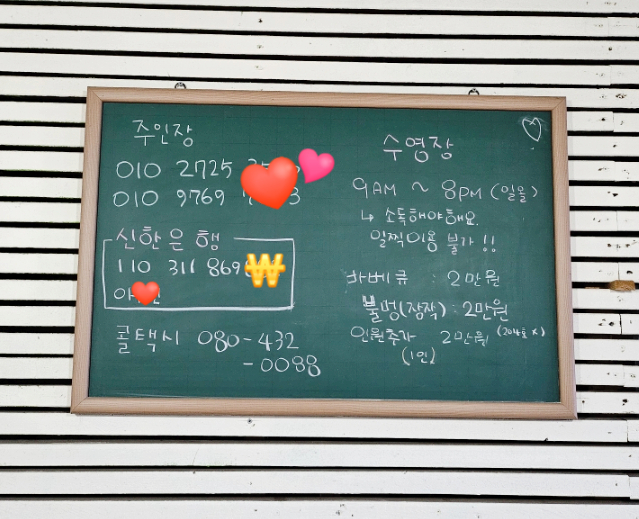 주인장
010 2725
010 9769 3
신한은행
110 311 869
콜택시 080-432
-0088
수영장
9AM ~ 8PM (일몰)
↳ 소독해야해요.
일찍이용 불가!!
바베큐 : 2만원
불멍(장작) : 2만원
인원추가 2만원 (204호 x)
(1인)